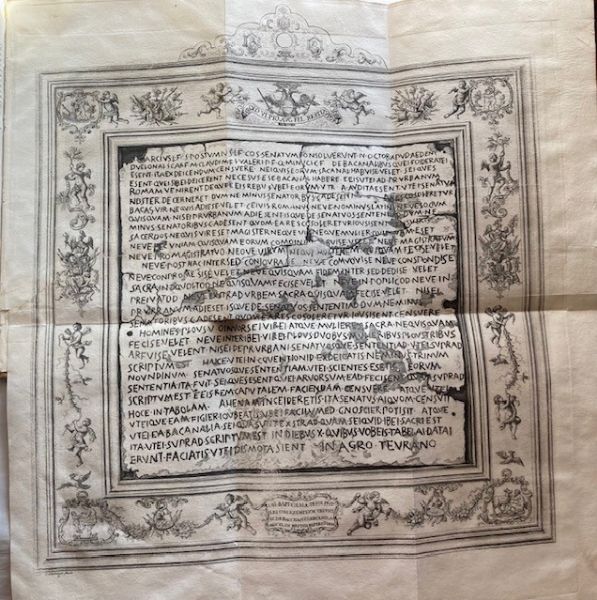 MARCIVS L F S POSTVMIVS L F COS SENATVM CONSOLVERVNT N OCTOB APVD AEDEM
DVELONAI SC ARF M CLAVDI M F L VALERI P F Q MINVCI C F DE BACANALIBVS QVEI FOIDERATEI
ESENT ITA EXDEICENDVM CENSVERE NEIQVIS EORVM SACANAL HABVISE VELET SEI QVES
ESENT QVEI SIBEI DEICERENT NECESVS ESE BACANAL HABERE EEIS VTEI AD PR VRBANVM
ROMAM VENIRENT DEQVE EEIS REBVS VBEI EORVM VTR A AVDITA ESENT VTEI SENATVS
NOSTER DECERNERET DVM NE MINVS SENATORBVS C ADESENT
BACAS VIR NEQVIS ADIESE VELET CEIVIS ROMANVS NEVE NOMINVS LATINI
QVISQVAM NISEI PR VRBANVM ADIESENT ISQVE DE SENATVOS SENTENTIAD DVM NE
MINVS SENATORIBVS C ADESENT QVOM EA RES COSOLERETVR IOVSISENT
SACERDOS NEQVIS VIR ESET MAGISTER NEQVE VIR ESET
NEVE PECVNIAM QVISQVAM EORVM COMOINEM NEVE MAGISTRATVM
NEVE PRO MAGISTRATVO NEQVE VIRVM NEQVE QVISQVAM FECISE VELET
NEVE POST HAC INTER SED CONIOVRASE NEVE COMVOVISE NEVE CONSPONDISE
NEVE CONPROMESISE VELET NEVE QVISQVAM FIDEM INTER SED DEDISE VELET
SACRA IN OQVOLTOD NE QVISQVAM FECISE VELET IN POPLICOD NEVE IN
PREIVATOD EXSTRAD VRBEM SACRA QVISQVAM FECISE VELET NISEI
PR VRBANVM ADIESET ISQVE DE SENATVOS SENTENTIAD DVM NE MINVS
SENATORIBVS C ADESENT QVOM EA RES COSOLERETVR IOVSISENT CENSVERE
HOMINES PLOVS V OINVORSEI VIREI ATQVE MVLIERES SACRA NE QVISQVAM
FECISE VELET NEVE INTER IBEI VIREI PLOVS DVOBVS MVLIERIBVS PLOVS TRIBVS
ARFVISE VELENT NISEI DE PR VRBANI SENATVOSQVE SENTENTIAD VTEI SVPRAD
SCRIPTVM EST HAICE VTEI IN COVENTIONID EXDEICATIS NE MINVS TRINVM
NOVNDINVM SENATVOSQVE SENTENTIAM VTEI SCIENTES ESETIS EORVM
SENTENTIA ITA FVIT SEI QVES ESENT QVEI ARVORSVM EAD FECISENT QVAM SVPRAD
SCRIPTVM EST EEIS REM CAPVTALEM FACIENDAM CENSVERE ATQVE VTEI
HOCE IN TABOLAM AHENAM INCEIDERETIS ITA SENATVS AIQVOM CENSVIT
VTEIQVE EAM FIGIER IOVBEATIS VBEI FACILVMED GNOSCIER POTISIT ATQVE
VTEI EA BACANALIA SEI QVA SVNT EXSTRAD QVAM SEI QVID IBEI SACRI EST
ITA VTEI SVPRAD SCRIPTVM EST IN DIEBVS X QVIBVS VOBEIS TABELAI DATAI
ERVNT FACIATIS VTEI DISMOTA SIENT IN AGRO TEVRANO